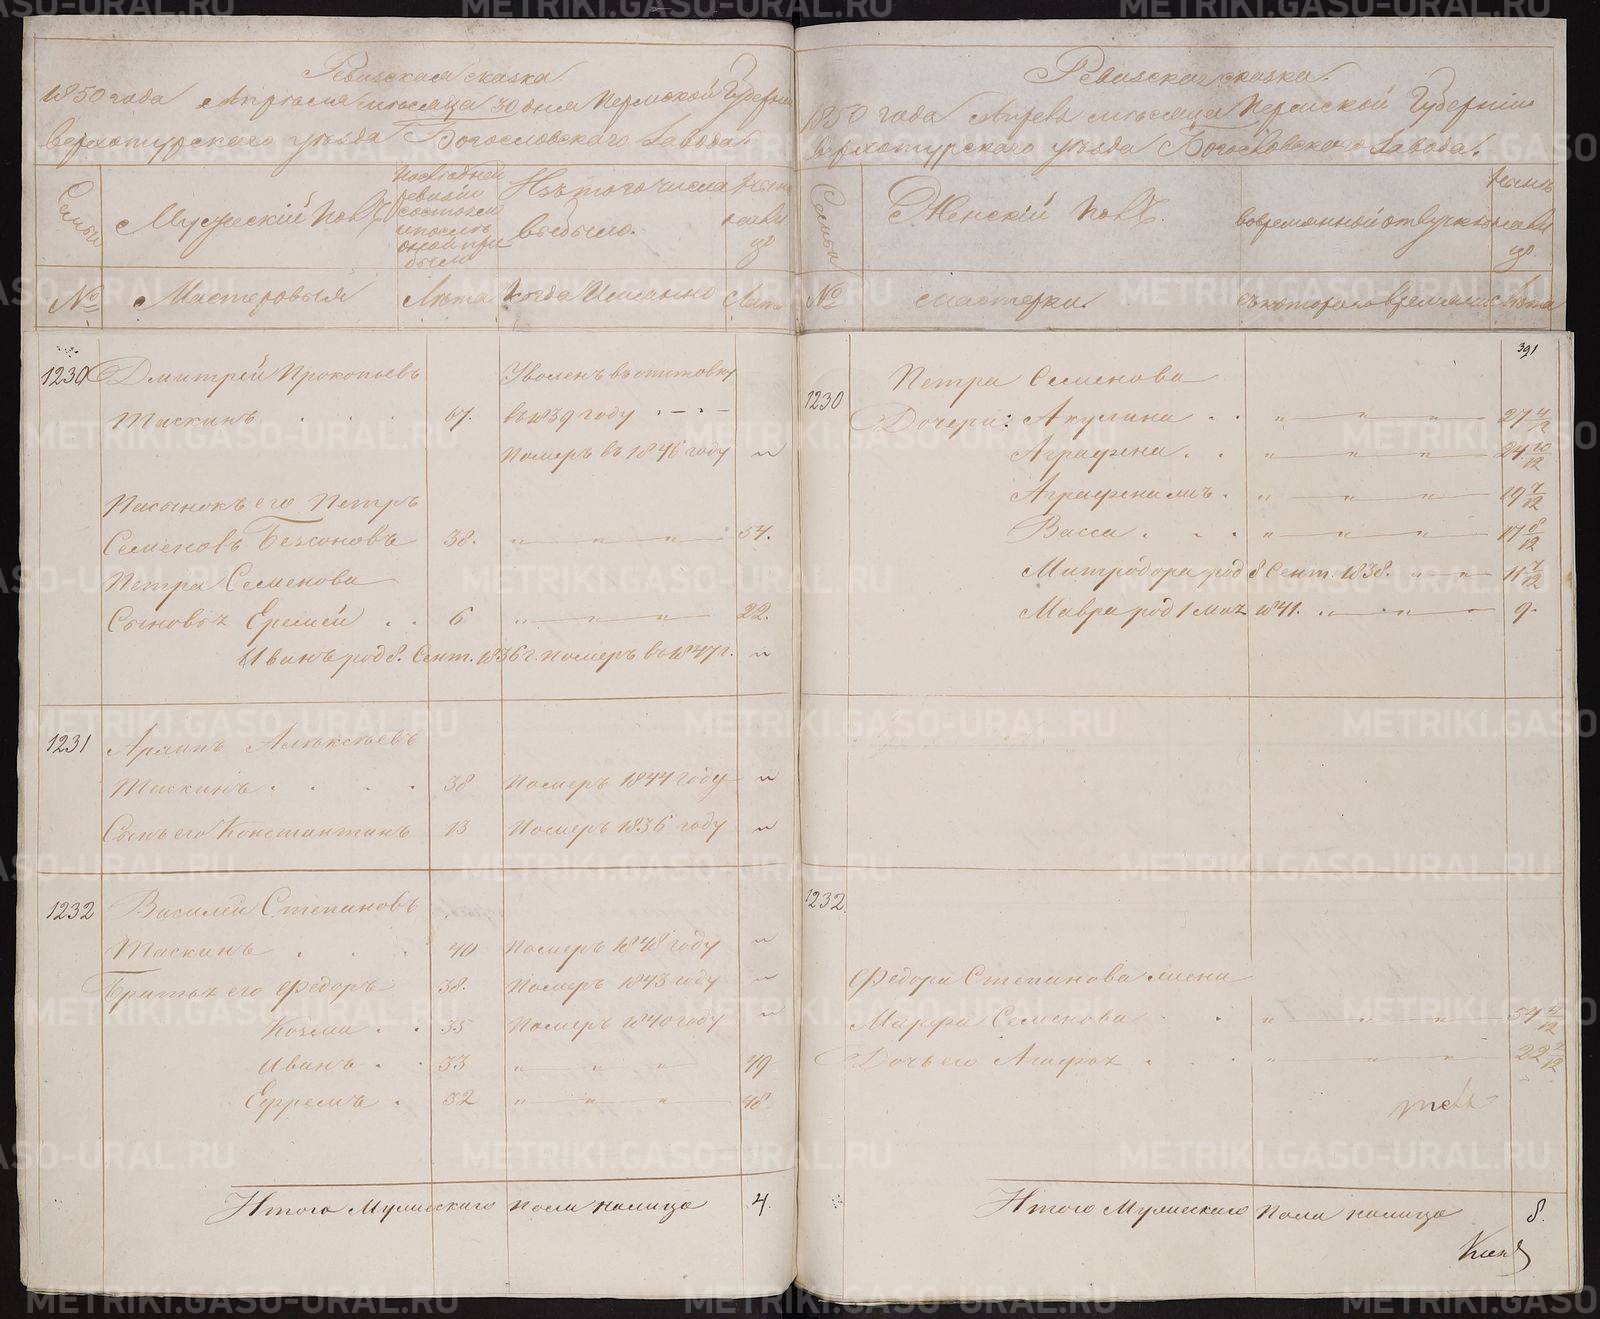 Ревизская сказка
1850 года Апреля месяца 30 дня Пермской Губернии
Верхотурского уезда Богословского Завода.
Семьи
Мужеский полъ
Последней ревизии состояли и после оной прибыли
Изъ того числа выбыло.
Ныне на лицо
№ Мастеровыя Лета Когда Именно Лета
1230 Дмитрей Прокопьевъ Уволенъ въ отставку
Таскинъ 67. въ 1839 году
Померъ въ 1846 году "
Пасынокъ его Петръ
Семеновъ Безсоновъ 38. " " " 54.
Петра Семенова
Сыновья Еремей 6 " " " 22.
Иванъ род 8. Сент. 1836 г. померъ въ 1847 г. "
1231 Алексеевъ
Таскинъ 38 Померъ 1844 году "
Сынъ его Константинъ 13 Померъ 1836 году "
1232 Василий Степановъ
Таскинъ 40 Померъ 1848 году "
Братья его Федоръ 38. Померъ 1843 году "
Козма 35 Померъ 1840 году "
Иванъ 33 " " " 49
Ефремъ 32 " " " 48
Итого Мужескаго пола налицо 4.
Ревизская сказка.
1850 года Апреля месяца Пермской Губернии
Верхотурского уезда Богословского Завода.
Семьи
Женский полъ.
во временной отлучке
Ныне на лицо
№ мастерки. съ котораго времени Лета
391
1230 Петра Семенова
Дочери: Акулина " " " " 27 4/12
Аграфена " " " " 24 10/12
Аграфена " " " " 19 7/12
Васса " " " " 17 8/12
Митродора род 8 Сент. 1838. " " 11 7/12
Мавра род 1 мая 1841. " " " 9
1232.
Федора Степанова жена
Марфа Семенова " " " " 54 4/12
Дочь его Агафья " " " " 22 2/12
Итого Мужескаго Пола налицо 8.
METRIKI.GASO-URAL.RU